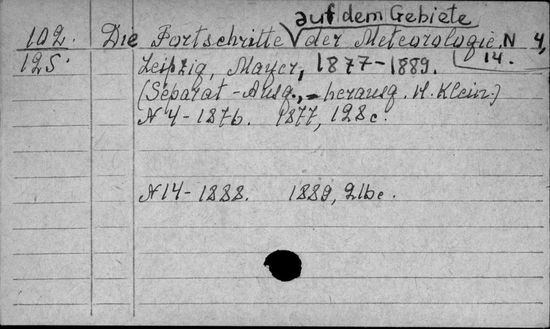 auf dem Gebiete
102. Die Fortschritte der Meteorologie, N 4,
125. Leipzig, Mayer, 1877-1889. 14.
(Separat-Ausg., - herausg. H. Klein.)
N 4 - 1876. 1877, 128 c.
N 14 - 1888. 1889, 216 c.